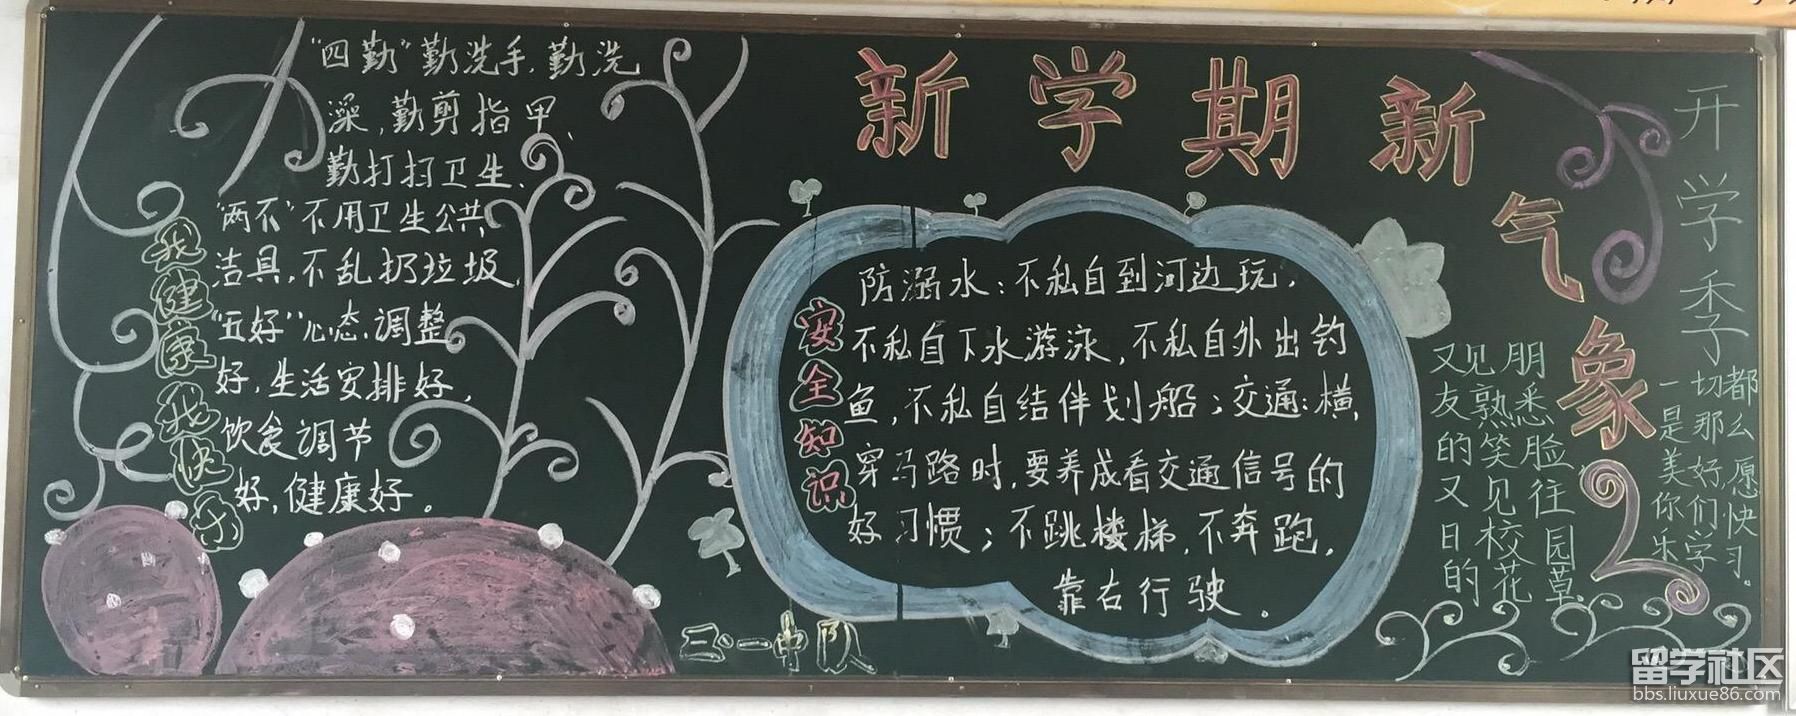 新学期新气象
"四勤"勤洗手、勤洗
澡，勤剪指甲、
勤打扫卫生、
"两不"不用卫生公共
洁具，不乱扔垃圾，
"五好"心态调整
好，生活安排好，
饮食调节
好，健康好。
我健康我快乐
安全知识
防溺水：不私自到河边玩，
不私自下水游泳，不私自外出钓
鱼，不私自结伴划船；交通：横
穿马路时，要养成看交通信号的
好习惯；不跳楼梯，不奔跑，
靠右行驶。
三·一中队
开学季
又见朋
友熟悉
的笑脸
又见往
日校园
的花草
一切都
是那么
美好愿
你们快
乐学习。
留学社区
bbs.liuxue86.com